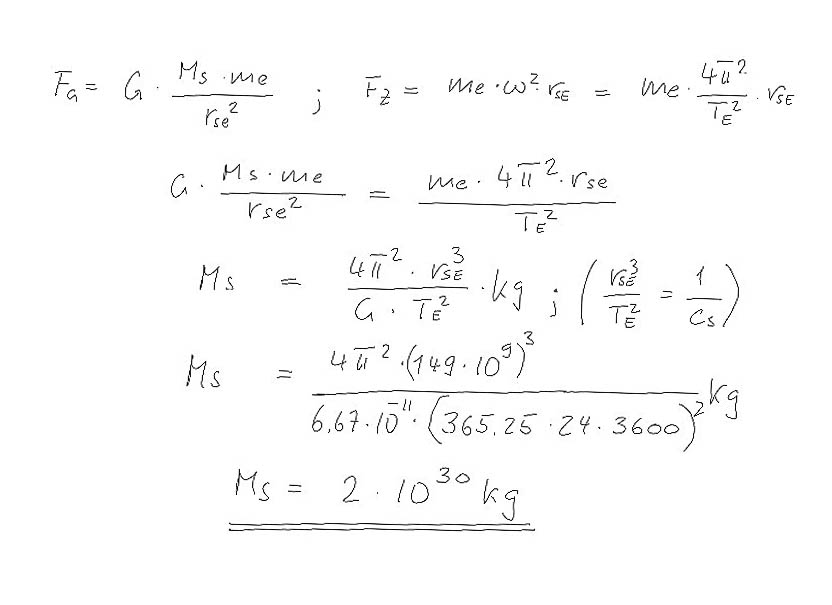 F_G = G · (Ms · me)/(rse²) ; F_Z = me · ω² · r_SE = me · (4π²)/(T_E²) · r_SE
G · (Ms · me)/(rse²) = (me · 4π² · rse)/(T_E²)
Ms = (4π² · r_SE³)/(G · T_E²) · kg ; (r_SE³/T_E² = 1/C_S)
Ms = (4π² · (149 · 10⁹)³)/(6,67 · 10⁻¹¹ · (365,25 · 24 · 3600)²) kg
Ms = 2 · 10³⁰ kg